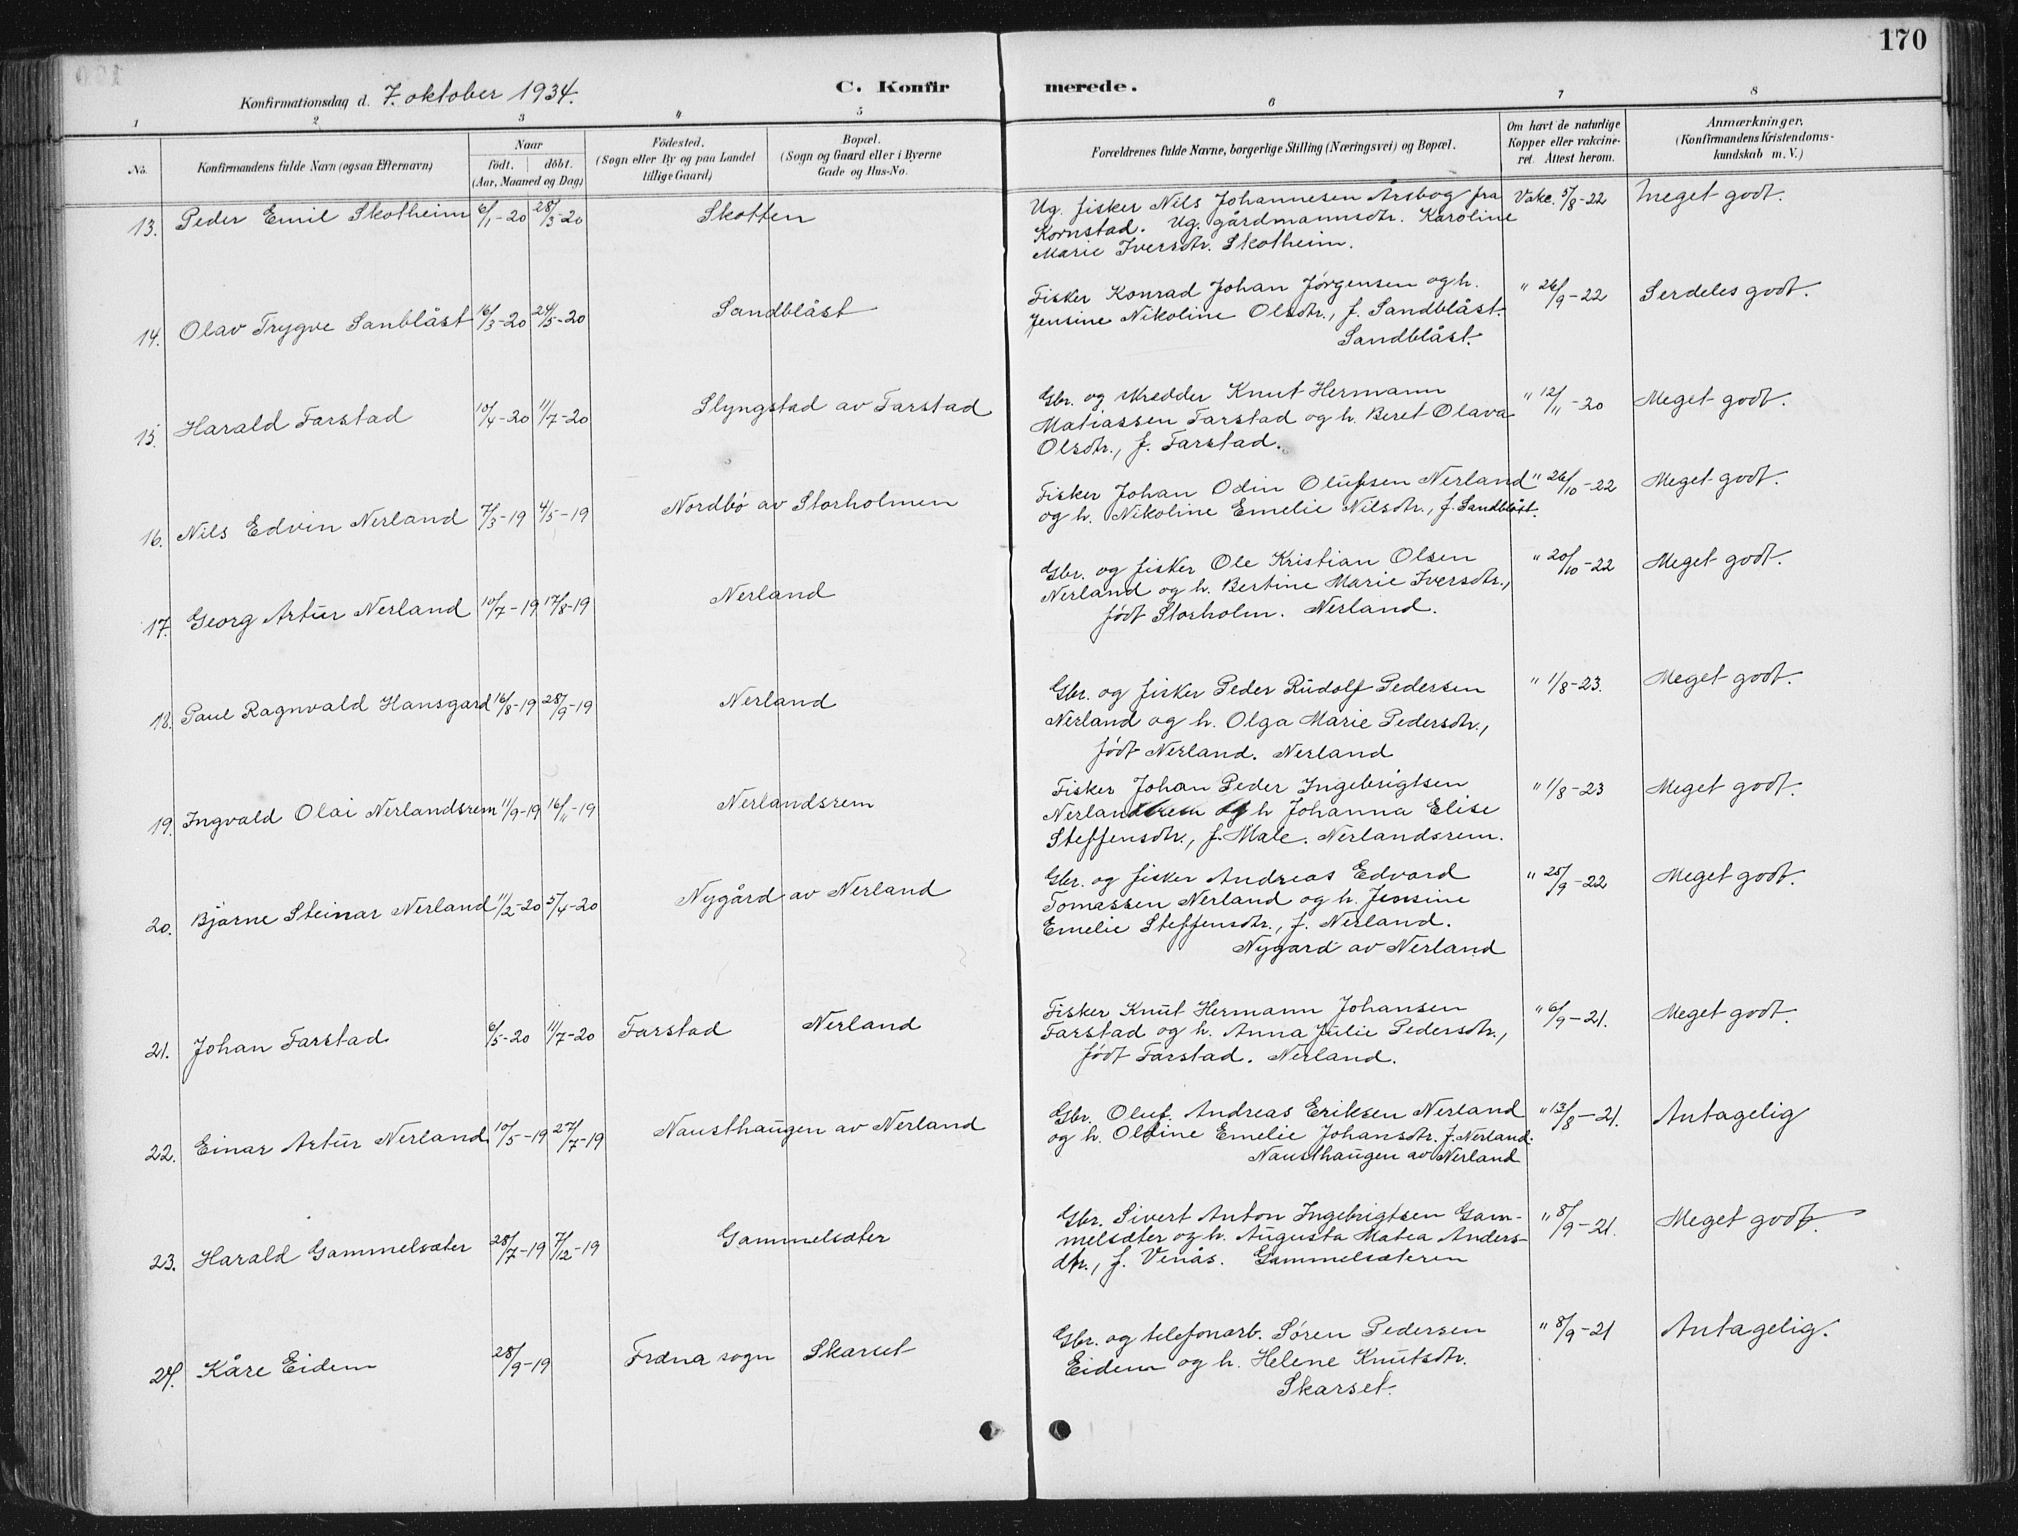 170
Konfirmationsdag d. 7. oktober 1934.
C. Konfirmerede.
1 2 3 4 5 6 7 8
No.
Konfirmandens fulde Navn (ogsaa Efternavn)
Naar
født. døbt.
(Aar, Maaned og Dag)
Fødested.
(Sogn eller By og paa Landet
tillige Gaard)
Bopæl.
(Sogn og Gaard eller i Byerne
Gade og Hus-No.
Forældrenes fulde Navne, borgerlige Stilling (Næringsvei) og Bopæl.
Om havt de naturlige
Kopper eller vakcine-
ret. Attest herom.
Anmærkninger.
(Konfirmandens Kristendoms-
kundskab m. V.)
13. Peder Emil Skotheim 6/1-20 28/3-20 Skotten
Ug. fisker Nils Johannesen Årsbog fra
Kornstad. Ug. gårdmannsdtr. Karoline
Marie Iversdtr. Skotheim.
Vakc. 5/8-22 Meget godt.
14. Olav Trygve Sanblåst 16/3-20 24/5-20 Sandblåst
Fisker Konrad Johan Jørgensen og h.
Jensine Nikoline Olsdtr., f. Sandblåst.
Sandblåst.
" 26/9-22 Serdeles godt.
15. Harald Farstad 10/4-20 11/7-20 Slyngstad av Farstad
Gbr. og skredder Knut Hermann
Matiassen Farstad og h. Beret Olava
Olsdtr., f. Farstad.
" 12/11-20 Meget godt.
16. Nils Edvin Nerland 7/3-19 4/5-19 Nordbø av Storholmen
Fisker Johan Odin Olufsen Nerland
og h. Nikoline Emelie Nilsdtr., f. Sandblåst.
" 26/10-22 Meget godt.
17. Georg Artur Nerland 10/7-19 17/8-19 Nerland
Gbr. og fisker Ole Kristian Olsen
Nerland og h. Bertine Marie Iversdtr.,
født Storholm. Nerland.
" 20/10-22 Meget godt.
18. Paul Ragnvald Hansgard 16/8-19 28/9-19 Nerland
Gbr. og fisker Peder Rudolf Pedersen
Nerland og h. Olga Marie Pedersdtr.,
født Nerland. Nerland
" 1/8-23. Meget godt.
19. Ingvald Olai Nerlandsrem 11/9-19 16/11-19 Nerlandsrem
Fisker Johan Peder Ingebrigtsen
Nerlandsrem og h Johanna Elise
Steffensdtr., f. Male. Nerlandsrem.
" 1/8-23 Meget godt.
20. Bjarne Steinar Nerland 11/2-20 5/4-20 Nygård av Nerland
Gbr. og fisker Andreas Edvard
Tomassen Nerland og h. Jensine
Emelie Steffensdtr., f. Nerland.
Nygard av Nerland
" 25/9-22 Meget godt.
21. Johan Farstad 6/5-20 11/7-20 Farstad Nerland
Fisker Knut Hermann Johansen
Farstad og h. Anna Julie Pedersdtr.,
født Farstad. Nerland.
" 6/9-21. Meget godt.
22. Einar Artur Nerland 10/5-19 27/7-19 Nausthaugen av Nerland
Gbr. Oluf. Andreas Eriksen Nerland
og h. Oldine Emelie Johansdtr. f. Nerland.
Nausthaugen av Nerland
" 13/8-21. Antagelig
23. Harald Gammelsæter 28/7-19 7/12-19 Gammelsæter
Gbr. Sivert Anton Ingebrigtsen Gam-
melsæter og h. Augusta Matea Anders-
dtr., f. Venås. Gammelsæteren
" 8/9-21. Meget godt.
24. Kåre Eidem 28/9-19 Fræna sogn Skarset
Gbr. og telefonarb. Søren Pedersen
Eidem og h. Helene Knutsdtr.
Skarset.
" 8/9-21 Antagelig.